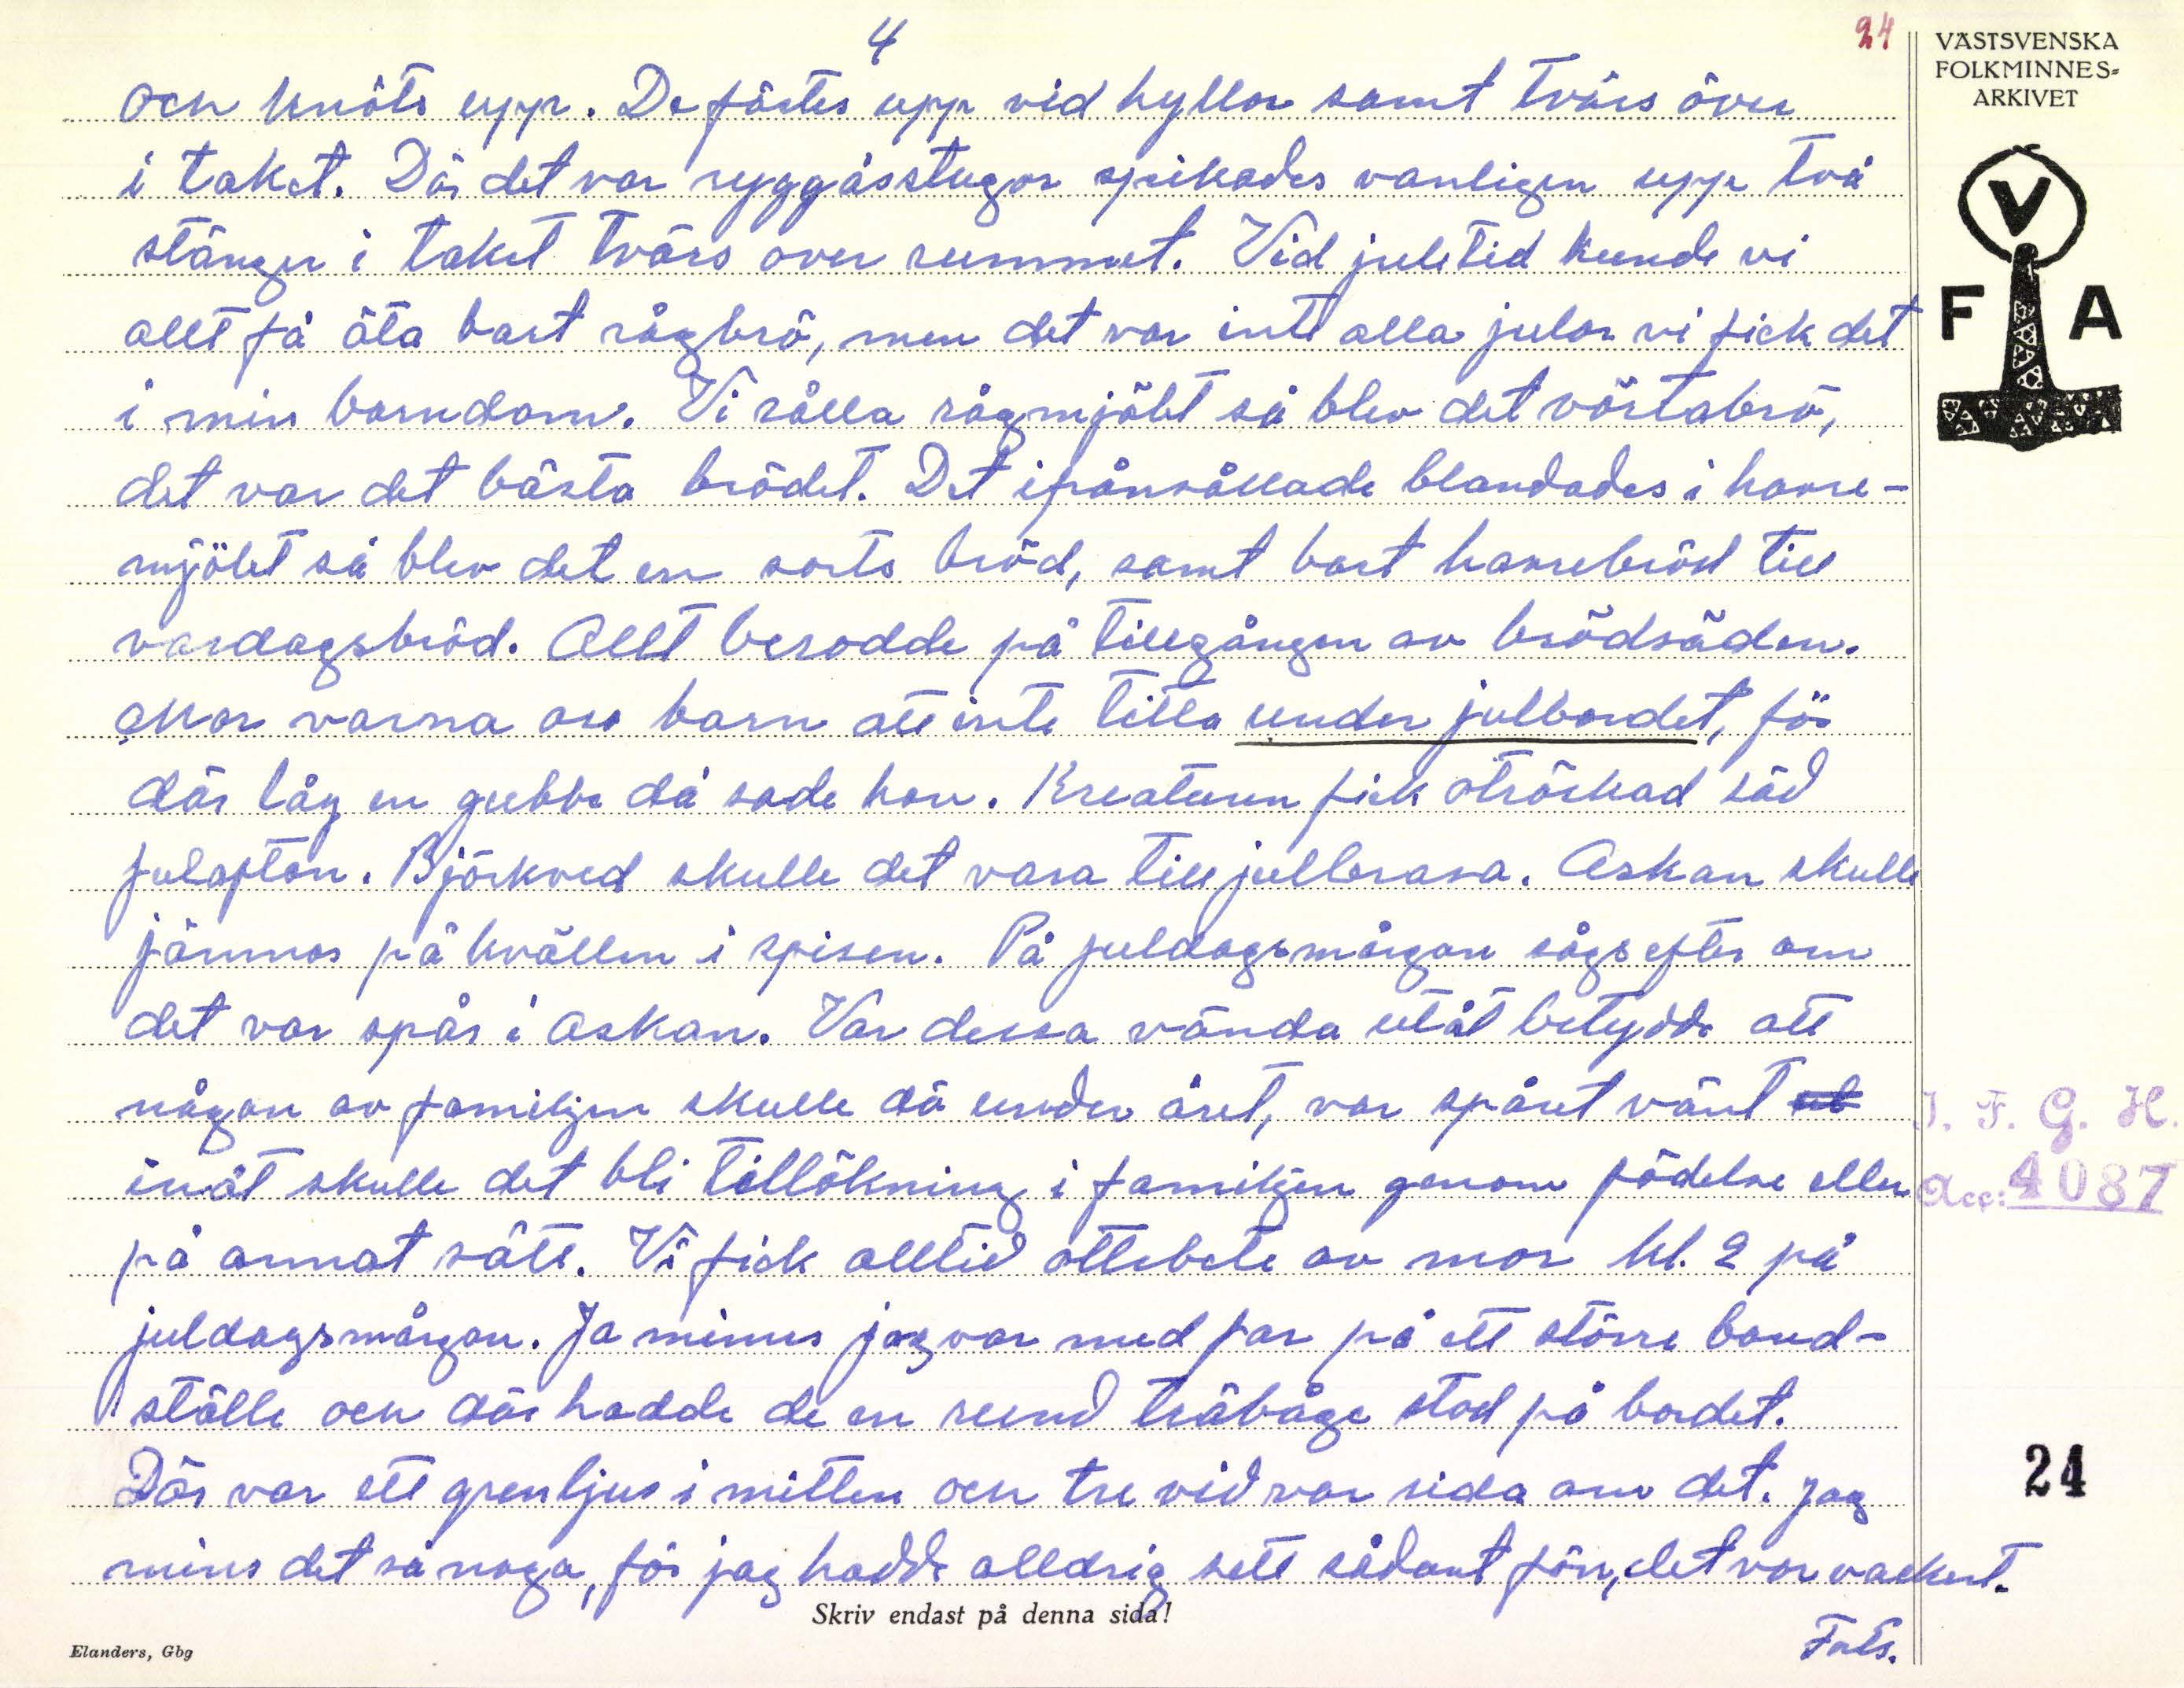 4
24
och knöts upp. De fästes upp vid hyllor samt tvärs över
i taket. Där det var ryggåsstugor spikades vanligen upp två
stänger i taket tvärs over rummet. Vid juletid kunde vi
allt få äta bart rågbrö, men det var inte alla jular vi fick det
i min barndom. Vi sålla rågmjölet så blev det vörtabrö,
det var det bästa brödet. Det ifrånsållade blandades i havre-
mjölet så blev det en sorts bröd, samt bart havrebröd till
vardagsbröd. Allt berodde på tillgången av brödsäden.
Mor varna oss barn att inte titta under julbordet, för
där låg en gubbe då sade hon. Kreaturen fick otröskad säd
julafton. Björkved skulle det vara till julbrasa. Askan skulle
jämnas på kvällen i spisen. På juldagsmårgon sågs efter om
det var spår i askan. Var dessa vända utåt betydde att
någon av familjen skulle dö under året, var spåret vänt ut
inåt skulle det bli tillökning i familjen genom födelse eller
på annat sätt. Vi fick alltid ottebete av mor kl. 2 på
juldagsmårgon. Ja minns jag var med far på ett större bond-
ställe och där hadde de en rund träbåge stod på bordet.
Där var ett grenljus i mitten och tre vid var sida om det. Jag
mins det så noga, för jag hadde alldrig sett sådant förr, det var vackert.
Forts.
Skriv endast på denna sida!
Elanders, Gbg
VÄSTSVENSKA
FOLKMINNES-
ARKIVET
V
F A
I. F. G. H.
Acc: 4087
24